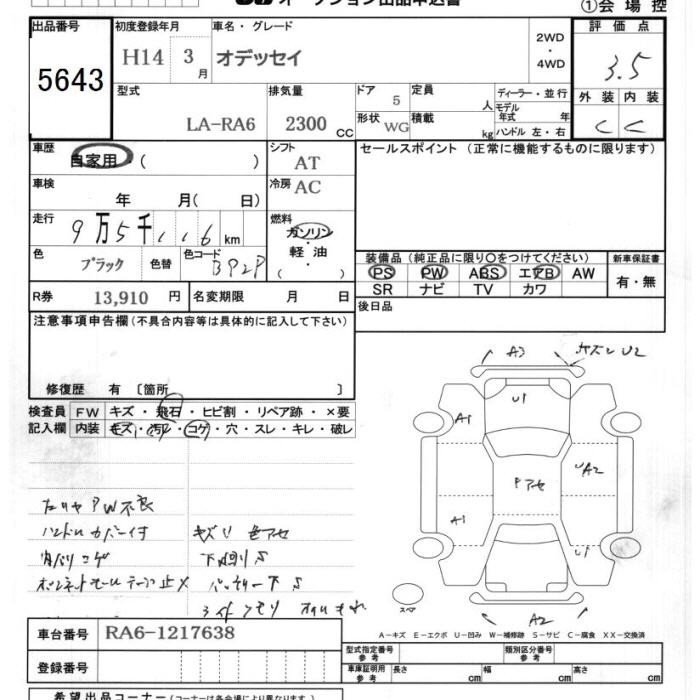 オークション出品申込書
①会場控
出品番号 初度登録年月 車名・グレード 評価点
5643 H14 3月 オデッセイ 2WD・4WD 3.5
型式 排気量 ドア 定員 ディーラー・並行 外装 内装
LA-RA6 2300 CC 5 人 モデル年式 年 C C
形状 WG 積載 kg ハンドル 左・右
車歴 シフト セールスポイント (正常に機能するものに限ります)
自家用・( ) AT
車検 冷房 AC
年 月( 日)
走行 燃料
9万5千116km ガソリン・軽油
( )
色 ブラック 色替 色コード BP2P
装備品(純正品に限り○をつけてください) 新車保証書
PS PW ABS エアB AW 有・無
SR ナビ TV カワ
R券 13,910 円 名変期限 月 日 後日品
注意事項申告欄(不具合内容等は具体的に記入して下さい)
修復歴 有 〔箇所 〕
検査員 FW キズ・飛石・ヒビ割・リペア跡・×要
記入欄 内装 キズ・汚レ・コゲ・穴・スレ・キレ・破レ
A3 U2
U1
A1
UA2
Pアセ
A1
U1
スペア
A2
左リヤPW不良
ハンドルカバー付 キズU 色アセ
内バリコゲ 下回りS
ボンネットモールテープ止メ バッテリー下S
A-キズ E-エクボ U-凹み W-補修跡 S-サビ C-腐食 XX-交換済
車台番号 RA6-1217638
登録番号
型式指定番号 参考 類別区分番号 参考
車庫証明用 参考 長さ cm 幅 cm 高さ cm
希望出品コーナー(コーナーは各会場により異なります)